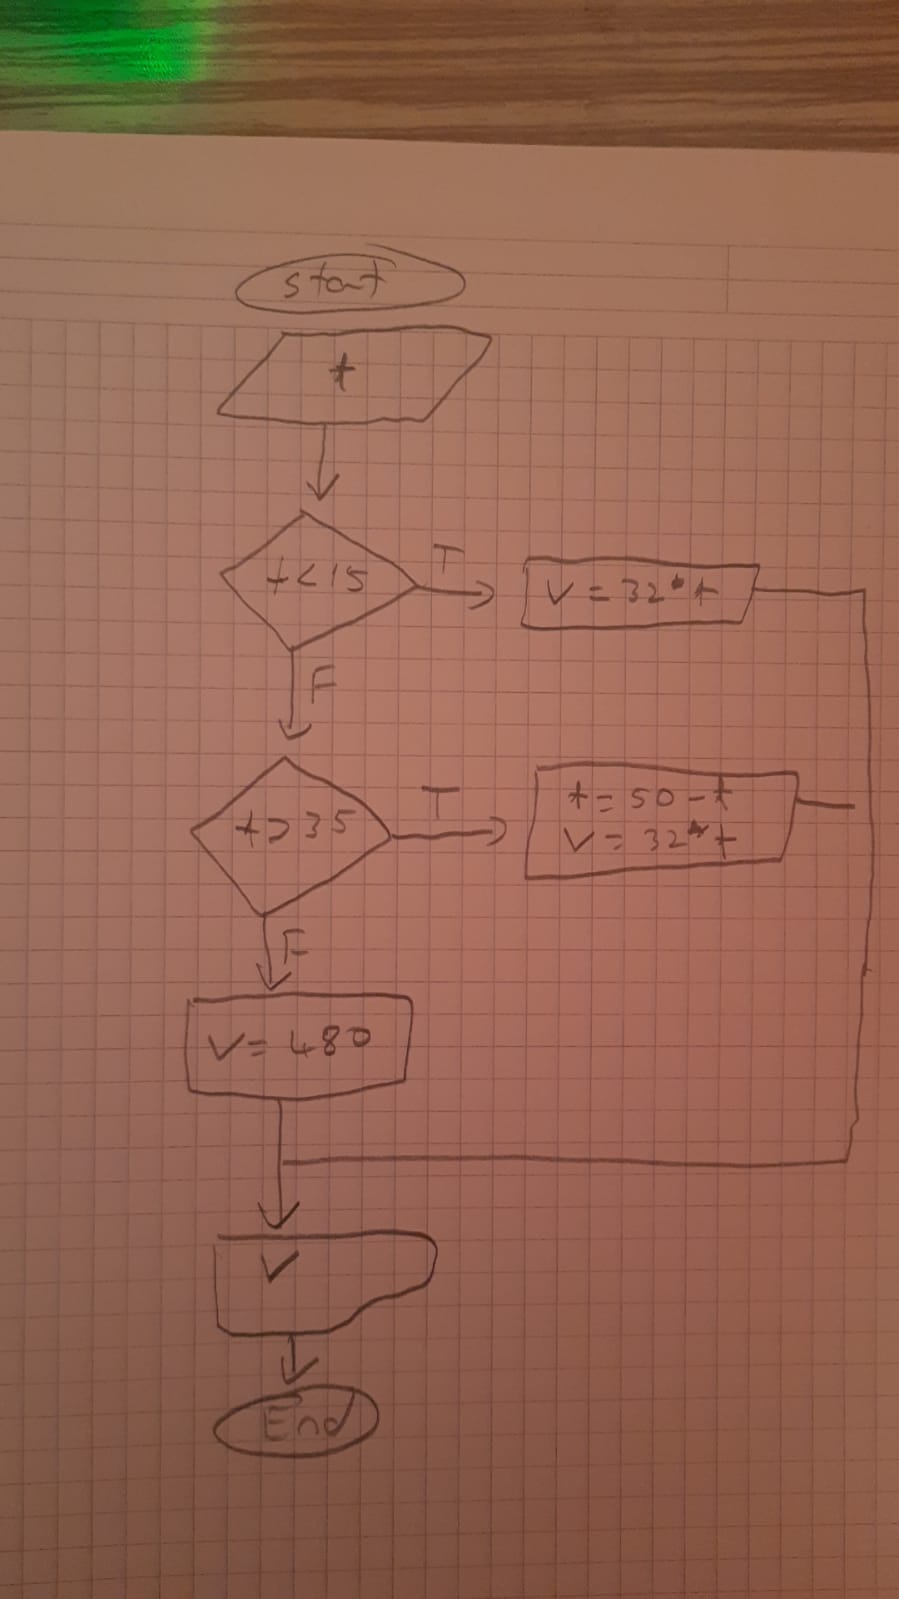 start
t
t<15
T
V = 32*t
F
t>35
T
t = 50-t
V = 32*t
F
V = 480
V
End